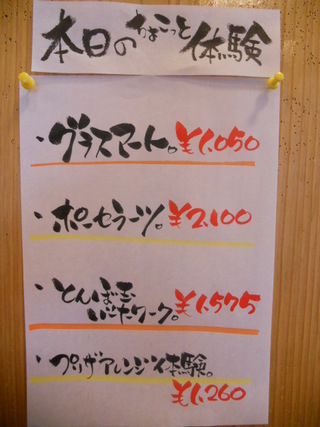 本日のちょこっと体験
・グラスアート。¥1,050
・ポーセラーツ。¥2,100
・とんぼ玉
いたワーク。¥1,575
・プリザアレンジ体験。
¥1,260